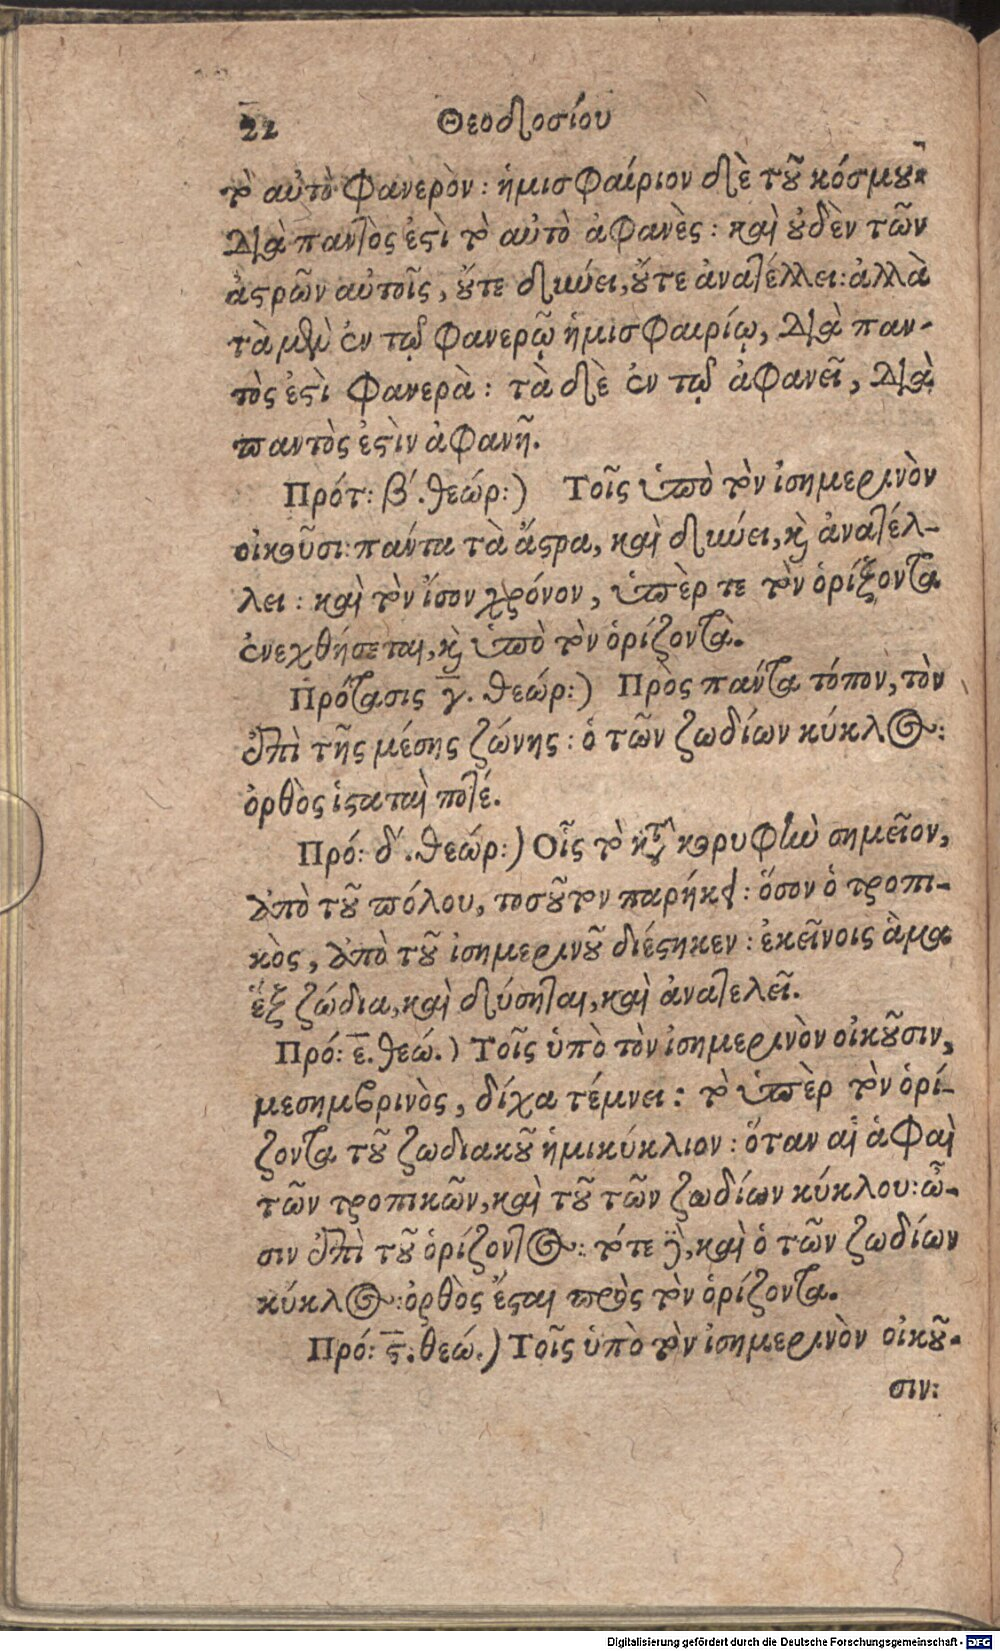 22 Θεοδοσίου
τὸ αὐτὸ φανερὸν: ἡμισφαίριον δὲ τοῦ κόσμου
διὰ παντὸς ἐστὶ τὸ αὐτὸ ἀφανὲς: καὶ οὐδὲν τῶν
ἄστρων αὐτοῖς, οὔτε δύνει, οὔτε ἀνατέλλει: ἀλλὰ
τὰ μὲν ἐν τῷ φανερῷ ἡμισφαιρίῳ, διὰ παν-
τὸς ἐστὶ φανερὰ: τὰ δὲ ἐν τῷ ἀφανεῖ, διὰ
παντὸς ἐστὶν ἀφανῆ.
Πρότ: β´. θεώρ:) Τοῖς ὑπὸ τὸν ἰσημερινὸν
οἰκοῦσι: πάντα τὰ ἄστρα, καὶ δύνει, καὶ ἀνατέλ-
λει: καὶ τὸν ἴσον χρόνον, ὑπὲρ τε τὸν ὁρίζοντα
ἐνεχθήσεται, καὶ ὑπὸ τὸν ὁρίζοντα.
Πρότασις γ. θεώρ:) Πρὸς πάντα τόπον, τὸν
ἐπὶ τῆς μέσης ζώνης: ὁ τῶν ζωδίων κύκλος:
ὀρθὸς ἵσταται ποτέ.
Πρό: δ´. θεώρ:) Οἷς τὸ κατὰ κορυφὴν σημεῖον,
ἀπὸ τοῦ πόλου, τοσοῦτον παρήκει: ὅσον ὁ τροπι-
κὸς, ἀπὸ τοῦ ἰσημερινοῦ διέστηκεν: ἐκείνοις ἅμα
ἓξ ζώδια, καὶ δύσηται, καὶ ἀνατελεῖ.
Πρό: ε. θεώ.) Τοῖς ὑπὸ τὸν ἰσημερινὸν οἰκοῦσιν,
μεσημβρινὸς, δίχα τέμνει: τὸ ὑπὲρ τὸν ὁρί-
ζοντα τοῦ ζωδιακοῦ ἡμικύκλιον: ὅταν αἱ ἁφαὶ
τῶν τροπικῶν, καὶ τοῦ τῶν ζωδίων κύκλου: ὦ-
σιν ἐπὶ τοῦ ὁρίζοντος: τότε γὰρ, καὶ ὁ τῶν ζωδίων
κύκλος: ὀρθὸς ἔσται πρὸς τὸν ὁρίζοντα.
Πρό: ϛ. θεώ.) Τοῖς ὑπὸ τὸν ἰσημερινὸν οἰκοῦ-
σιν:
Digitalisierung gefördert durch die Deutsche Forschungsgemeinschaft - DFG